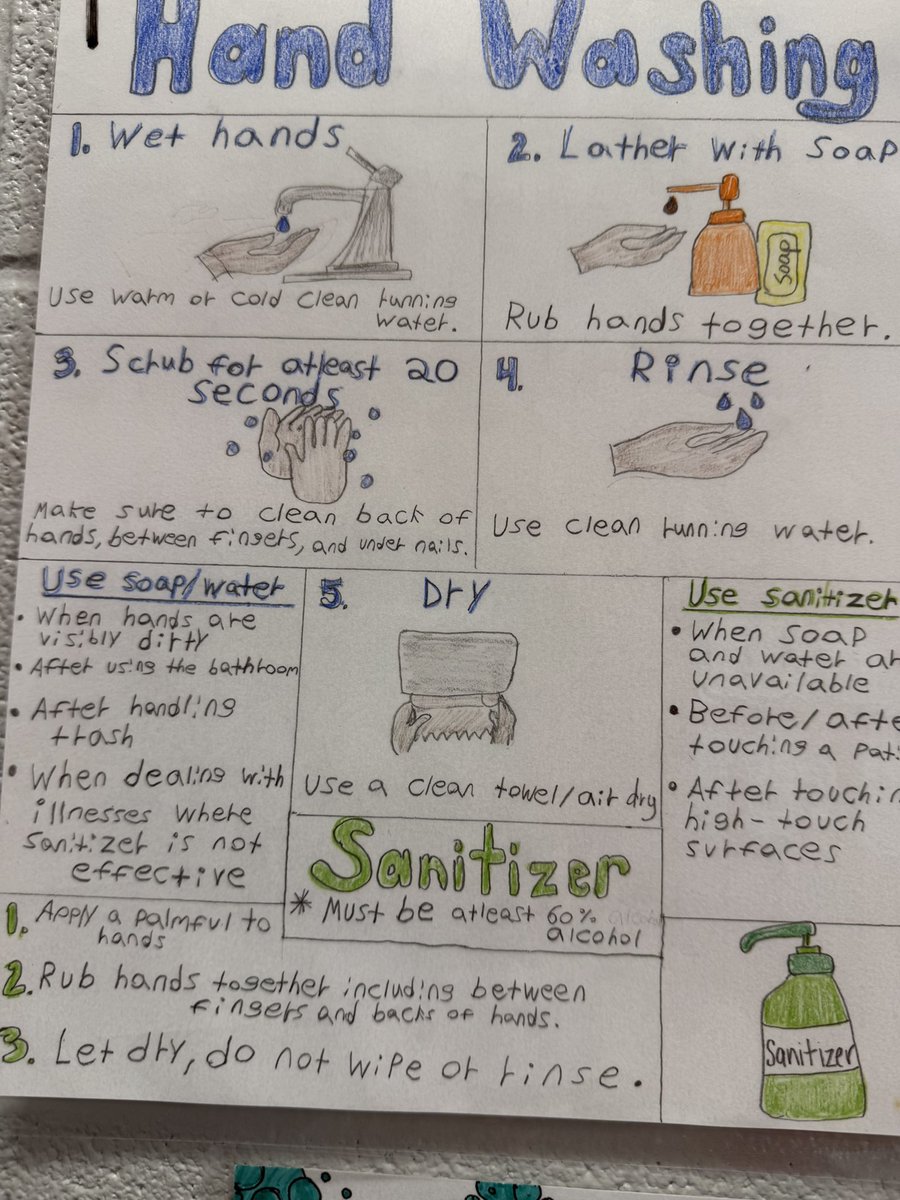 Hand Washing
1. Wet hands
Use warm or cold clean running
water.
2. Lather with soap
soap
Rub hands together.
3. Scrub for atleast 20
seconds
Make sure to clean back of
hands, between fingers, and under nails.
4. Rinse
Use clean running water.
Use soap/water
• When hands are
visibly dirty
• After using the bathroom
• After handling
trash
• When dealing with
illnesses where
sanitizer is not
effective
5. Dry
Use a clean towel/air dry
Use sanitizer
• When soap
and water ar
unavailable
• Before/afte
touching a pati
• After touchin
high-touch
surfaces
Sanitizer
* Must be atleast 60% alcohol
alcohol
1. Apply a palmful to
hands
2. Rub hands together including between
fingers and backs of hands.
3. Let dry, do not wipe or rinse.
Sanitizer